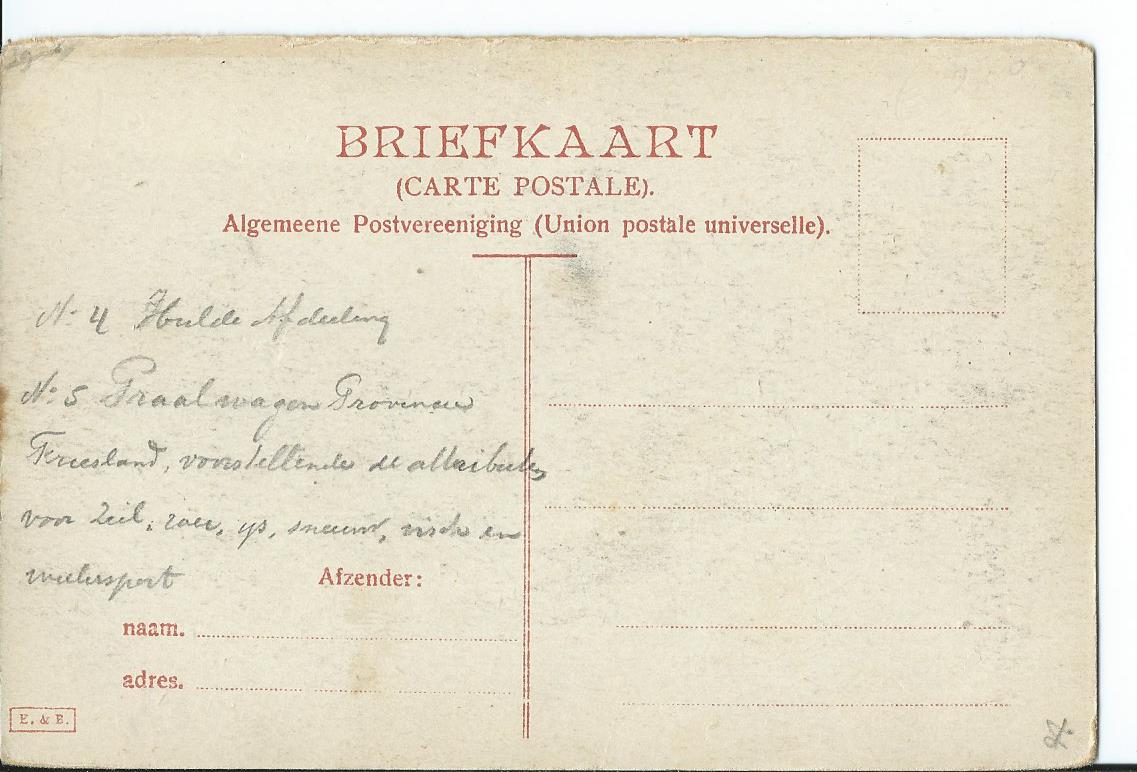 BRIEFKAART
(CARTE POSTALE).
Algemeene Postvereeniging (Union postale universelle).
No 4 Hulde Afdeeling
No 5 Praalwagen Provincie
Friesland, voorstellende de attributen
voor Zeil, roei, ys, sneeuw, visch en
wielersport
Afzender:
naam.
adres.
E. & B.